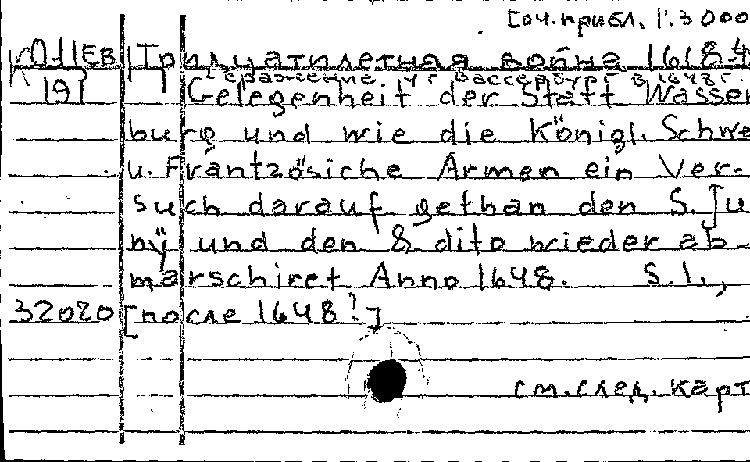 [оч. прибл. 1:3000
К 0-11ЕВ Тридцатилетняя война 1618-4
Сражение у г. Вассербург в 1648 г.
191 Gelegenheit der Statt Wasser
burg und wie die Königl. Schwe
u. Frantzösiche Armen ein Ver-
such darauf gethan den S. Ju
nÿ und den 8 dito wieder ab-
marschiret Anno 1648. S.l.,
32020 [после 1648?]
см. след. карт